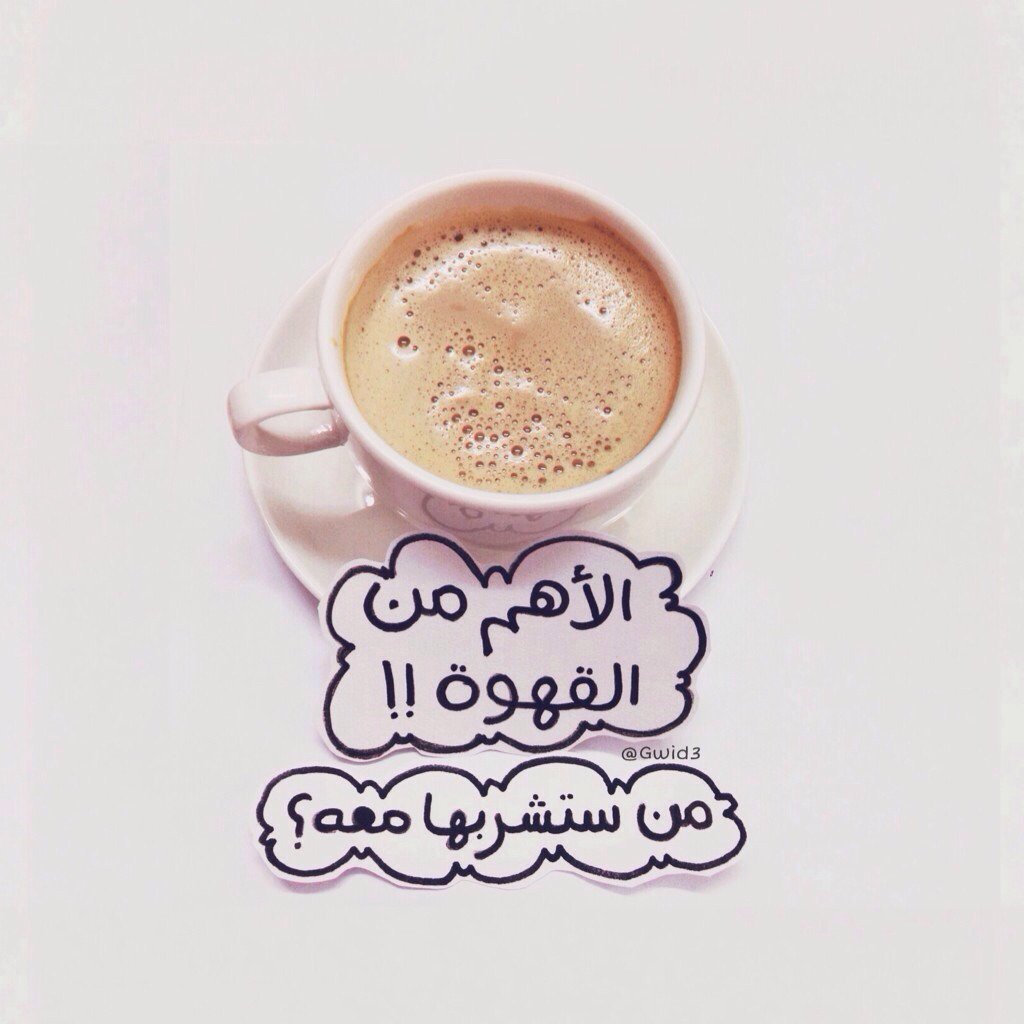 الأهم من
القهوة !!
@Gwid3
من ستشربها معه؟